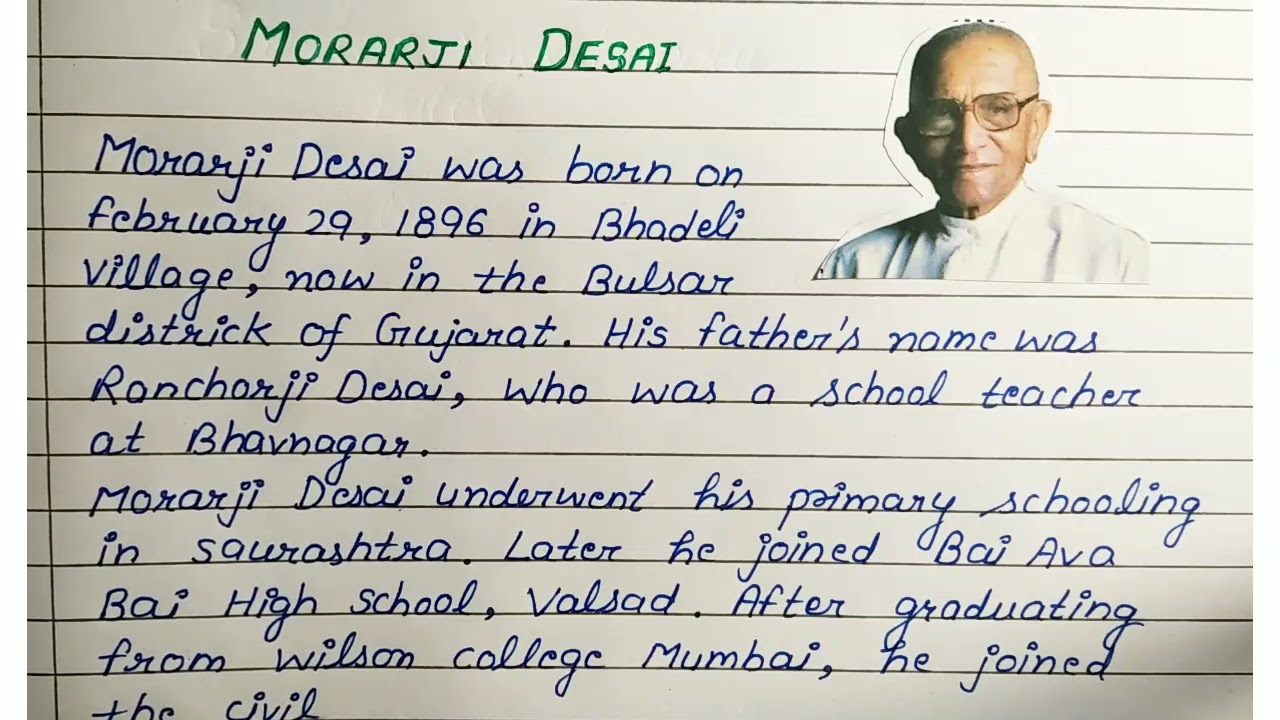 MORARJI DESAI
Morarji Desai was born on
february 29, 1896 in Bhadeli
village, now in the Bulsar
districk of Gujarat. His father's name was
Ranchorji Desai, who was a school teacher
at Bhavnagar.
Morarji Desai underwent his primary schooling
in saurashtra. Later he joined Bai Ava
Bai High school, Valsad. After graduating
from wilson college Mumbai, he joined
the civil